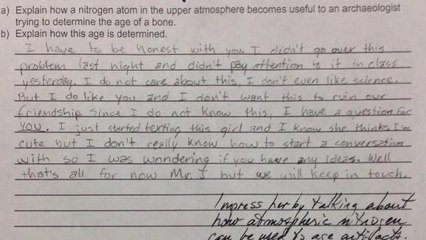 a) Explain how a nitrogen atom in the upper atmosphere becomes useful to an archaeologist
trying to determine the age of a bone.
b) Explain how this age is determined.
I have to be honest with you. I didn't go over this
problem last night and didn't pay attention to it in class
yesterday. I do not care about this, I don't even like science.
But I do like you and I don't want this to ruin our
friendship. Since I do not know this, I have a question for
you. I just started texting this girl and I know she thinks I'm
cute but I don't really know how to start a conversation
with so I was wondering if you have any ideas. Well
that's all for now Mr. I but we will keep in touch.
Impress her by talking about
how atmospheric nitrogen
can be used to age artifacts.